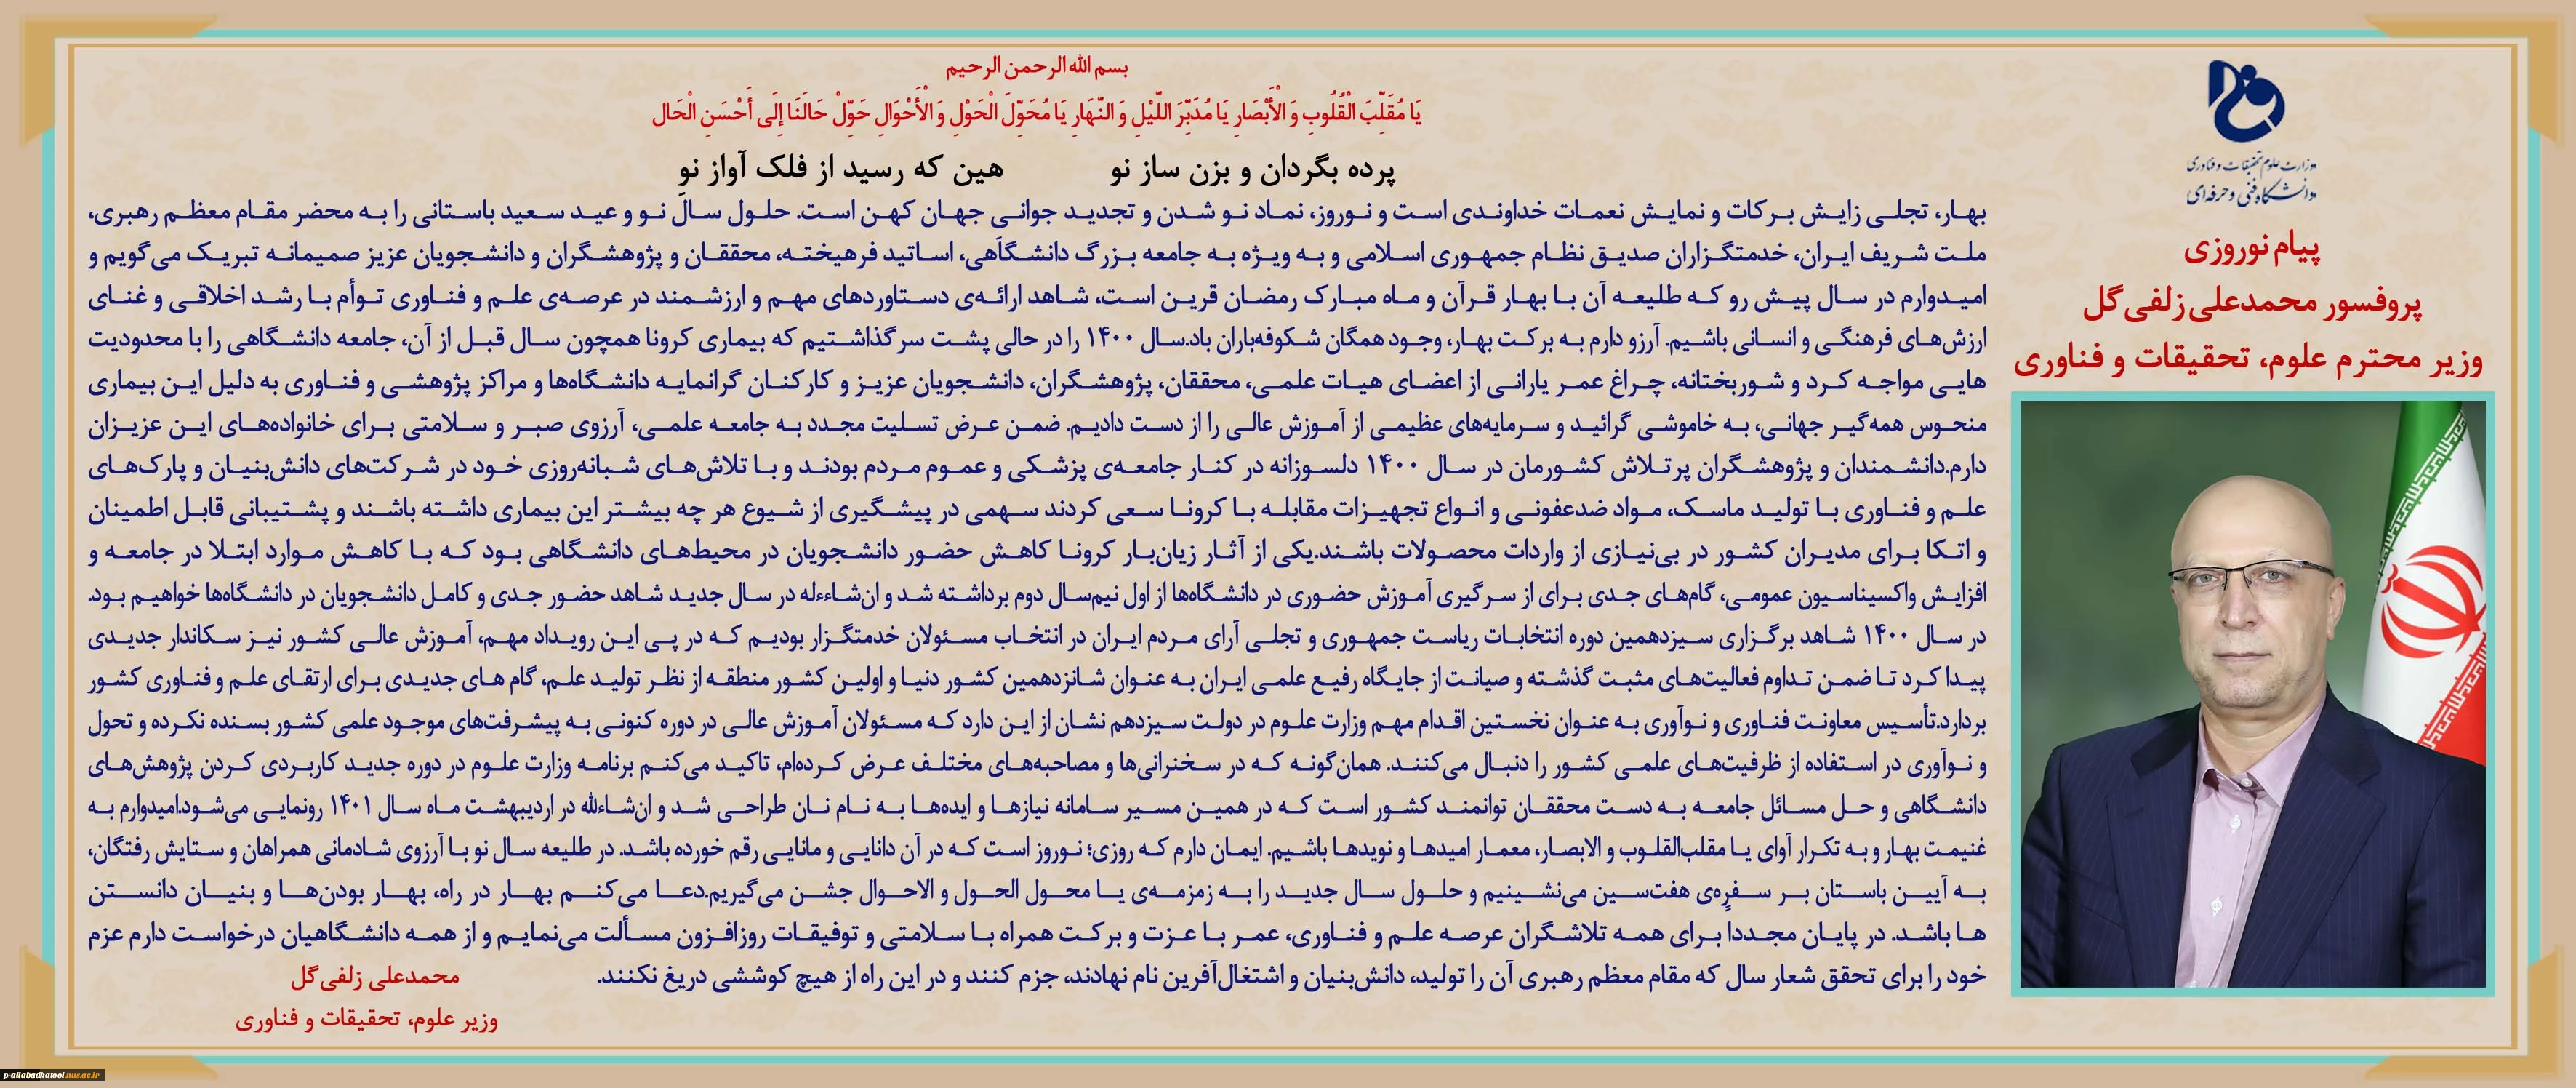 وزارت علوم تحقیقات و فناوری
دانشگاه فنی و حرفه‌ای
پیام نوروزی
پروفسور محمدعلی زلفی‌گل
وزیر محترم علوم، تحقیقات و فناوری
بسم الله الرحمن الرحیم
یَا مُقَلِّبَ الْقُلُوبِ وَ الْأَبْصَارِ یَا مُدَبِّرَ اللَّیْلِ وَ النَّهَارِ یَا مُحَوِّلَ الْحَوْلِ وَ الْأَحْوَالِ حَوِّلْ حَالَنَا إِلَی أَحْسَنِ الْحَال
پرده بگردان و بزن ساز نو هین که رسید از فلک آواز نو
بهار، تجلی زایش برکات و نمایش نعمات خداوندی است و نوروز، نماد نو شدن و تجدید جوانی جهان کهن است. حلول سال نو و عید سعید باستانی را به محضر مقام معظم رهبری،
ملت شریف ایران، خدمتگزاران صدیق نظام جمهوری اسلامی و به ویژه به جامعه بزرگ دانشگاهی، اساتید فرهیخته، محققان و پژوهشگران و دانشجویان عزیز صمیمانه تبریک می‌گویم و
امیدوارم در سال پیش رو که طلیعه آن با بهار قرآن و ماه مبارک رمضان قرین است، شاهد ارائه‌ی دستاوردهای مهم و ارزشمند در عرصه‌ی علم و فناوری توأم با رشد اخلاقی و غنای
ارزش‌های فرهنگی و انسانی باشیم. آرزو دارم به برکت بهار، وجود همگان شکوفه‌باران باد.سال ۱۴۰۰ را در حالی پشت سر گذاشتیم که بیماری کرونا همچون سال قبل از آن، جامعه دانشگاهی را با محدودیت
هایی مواجه کرد و شوربختانه، چراغ عمر یارانی از اعضای هیات علمی، محققان، پژوهشگران، دانشجویان عزیز و کارکنان گرانمایه دانشگاه‌ها و مراکز پژوهشی و فناوری به دلیل این بیماری
منحوس همه‌گیر جهانی، به خاموشی گرائید و سرمایه‌های عظیمی از آموزش عالی را از دست دادیم. ضمن عرض تسلیت مجدد به جامعه علمی، آرزوی صبر و سلامتی برای خانواده‌های این عزیزان
دارم.دانشمندان و پژوهشگران پرتلاش کشورمان در سال ۱۴۰۰ دلسوزانه در کنار جامعه‌ی پزشکی و عموم مردم بودند و با تلاش‌های شبانه‌روزی خود در شرکت‌های دانش‌بنیان و پارک‌های
علم و فناوری با تولید ماسک، مواد ضدعفونی و انواع تجهیزات مقابله با کرونا سعی کردند سهمی در پیشگیری از شیوع هر چه بیشتر این بیماری داشته باشند و پشتیبانی قابل اطمینان
و اتکا برای مدیران کشور در بی‌نیازی از واردات محصولات باشند.یکی از آثار زیان‌بار کرونا کاهش حضور دانشجویان در محیط‌های دانشگاهی بود که با کاهش موارد ابتلا در جامعه و
افزایش واکسیناسیون عمومی، گام‌های جدی برای از سرگیری آموزش حضوری در دانشگاه‌ها از اول نیم‌سال دوم برداشته شد و ان‌شاءءله در سال جدید شاهد حضور جدی و کامل دانشجویان در دانشگاه‌ها خواهیم بود.
در سال ۱۴۰۰ شاهد برگزاری سیزدهمین دوره انتخابات ریاست جمهوری و تجلی آرای مردم ایران در انتخاب مسئولان خدمتگزار بودیم که در پی این رویداد مهم، آموزش عالی کشور نیز سکاندار جدیدی
پیدا کرد تا ضمن تداوم فعالیت‌های مثبت گذشته و صیانت از جایگاه رفیع علمی ایران به عنوان شانزدهمین کشور دنیا و اولین کشور منطقه از نظر تولید علم، گام های جدیدی برای ارتقای علم و فناوری کشور
بردارد.تأسیس معاونت فناوری و نوآوری به عنوان نخستین اقدام مهم وزارت علوم در دولت سیزدهم نشان از این دارد که مسئولان آموزش عالی در دوره کنونی به پیشرفت‌های موجود علمی کشور بسنده نکرده و تحول
و نوآوری در استفاده از ظرفیت‌های علمی کشور را دنبال می‌کنند. همان‌گونه که در سخنرانی‌ها و مصاحبه‌های مختلف عرض کرده‌ام، تاکید می‌کنم برنامه وزارت علوم در دوره جدید کاربردی کردن پژوهش‌های
دانشگاهی و حل مسائل جامعه به دست محققان توانمند کشور است که در همین مسیر سامانه نیازها و ایده‌ها به نام نان طراحی شد و ان‌شاءالله در اردیبهشت ماه سال ۱۴۰۱ رونمایی می‌شود.امیدوارم به
غنیمت بهار و به تکرار آوای یا مقلب‌القلوب و الابصار، معمار امیدها و نویدها باشیم. ایمان دارم که روزی؛ نوروز است که در آن دانایی و مانایی رقم خورده باشد. در طلیعه سال نو با آرزوی شادمانی همراهان و ستایش رفتگان،
به آیین باستان بر سفره‌ی هفت‌سین می‌نشینیم و حلول سال جدید را به زمزمه‌ی یا محول الحول و الاحوال جشن می‌گیریم.دعا می‌کنم بهار در راه، بهار بودن‌ها و بنیان دانستن
ها باشد. در پایان مجددا برای همه تلاشگران عرصه علم و فناوری، عمر با عزت و برکت همراه با سلامتی و توفیقات روزافزون مسألت می‌نمایم و از همه دانشگاهیان درخواست دارم عزم
خود را برای تحقق شعار سال که مقام معظم رهبری آن را تولید، دانش‌بنیان و اشتغال‌آفرین نام نهادند، جزم کنند و در این راه از هیچ کوششی دریغ نکنند.
محمدعلی زلفی‌گل
وزیر علوم، تحقیقات و فناوری
p-aliabadkatool.nus.ac.ir